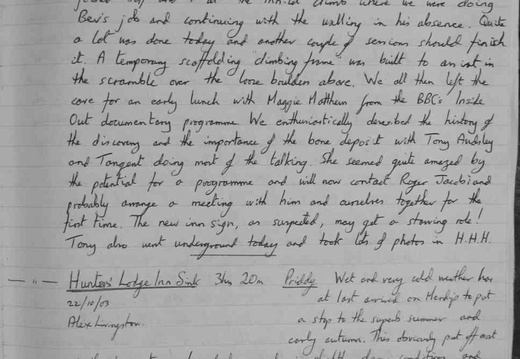 at the initial climb where we were doing
Bev's job and continuing with the walling in his absence. Quite
a lot was done today and another couple of sessions should finish
it. A temporary scaffolding "climbing frame" was built to assist in
the scramble over the loose boulders above. We all then left the
cave for an early lunch with Maggie Matthews from the BBC's Inside
Out documentary programme. We enthusiastically described the history of
the discovery and the importance of the bone deposit with Tony Audsley
and Tangent doing most of the talking. She seemed quite amazed by
the potential for a programme and will now contact Roger Jacobi and
probably arrange a meeting with him and ourselves together for the
first time. The new inn sign, as suspected, may get a starring role!
Tony also went underground today and took lots of photos in H.H.H.
— " — Hunters' Lodge Inn Sink 3hrs 20m Priddy Wet and very cold weather has
22/10/03 at last arrived on Mendip to put
Alex Livingston. a stop to the superb summer and
early autumn. This obviously put off most